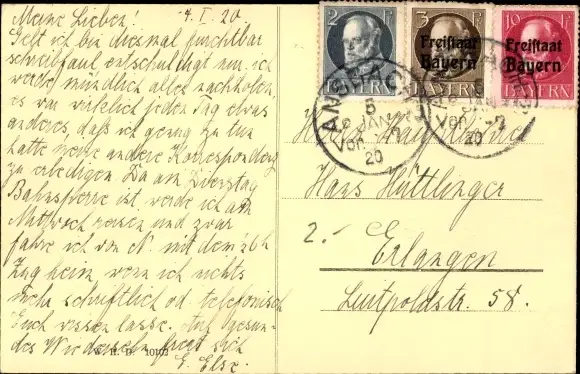 Meine Lieben! 4. I. 20
Gelt ich bin diesmal furchtbar
schreibfaul entschuldigt nur. ich
werde mündlich alles nachholen,
es war wirklich jeden Tag etwas
anderes, daß ich genug zu tun
hatte meine andere Korrespondenz
zu erledigen. Da am Dienstag
Bahnsperre ist werde ich am
Mittwoch reisen und zwar
fahre ich von N. mit dem
Zug heim, wenn ich nichts
mehr schriftlich od. telefonisch
Euch wissen lasse. Auf gesun-
des Wiedersehen freut sich
E. Else.
2 PF
BAYERN
3 PF
Freistaat
Bayern
BAYERN
10 PF
Freistaat
Bayern
BAYERN
ANSBACH
5 JAN
Vor.
20
JAN
Vor.
20
Herrn
Hans Hüttlinger
2.- Erlangen
Luitpoldstr. 58.